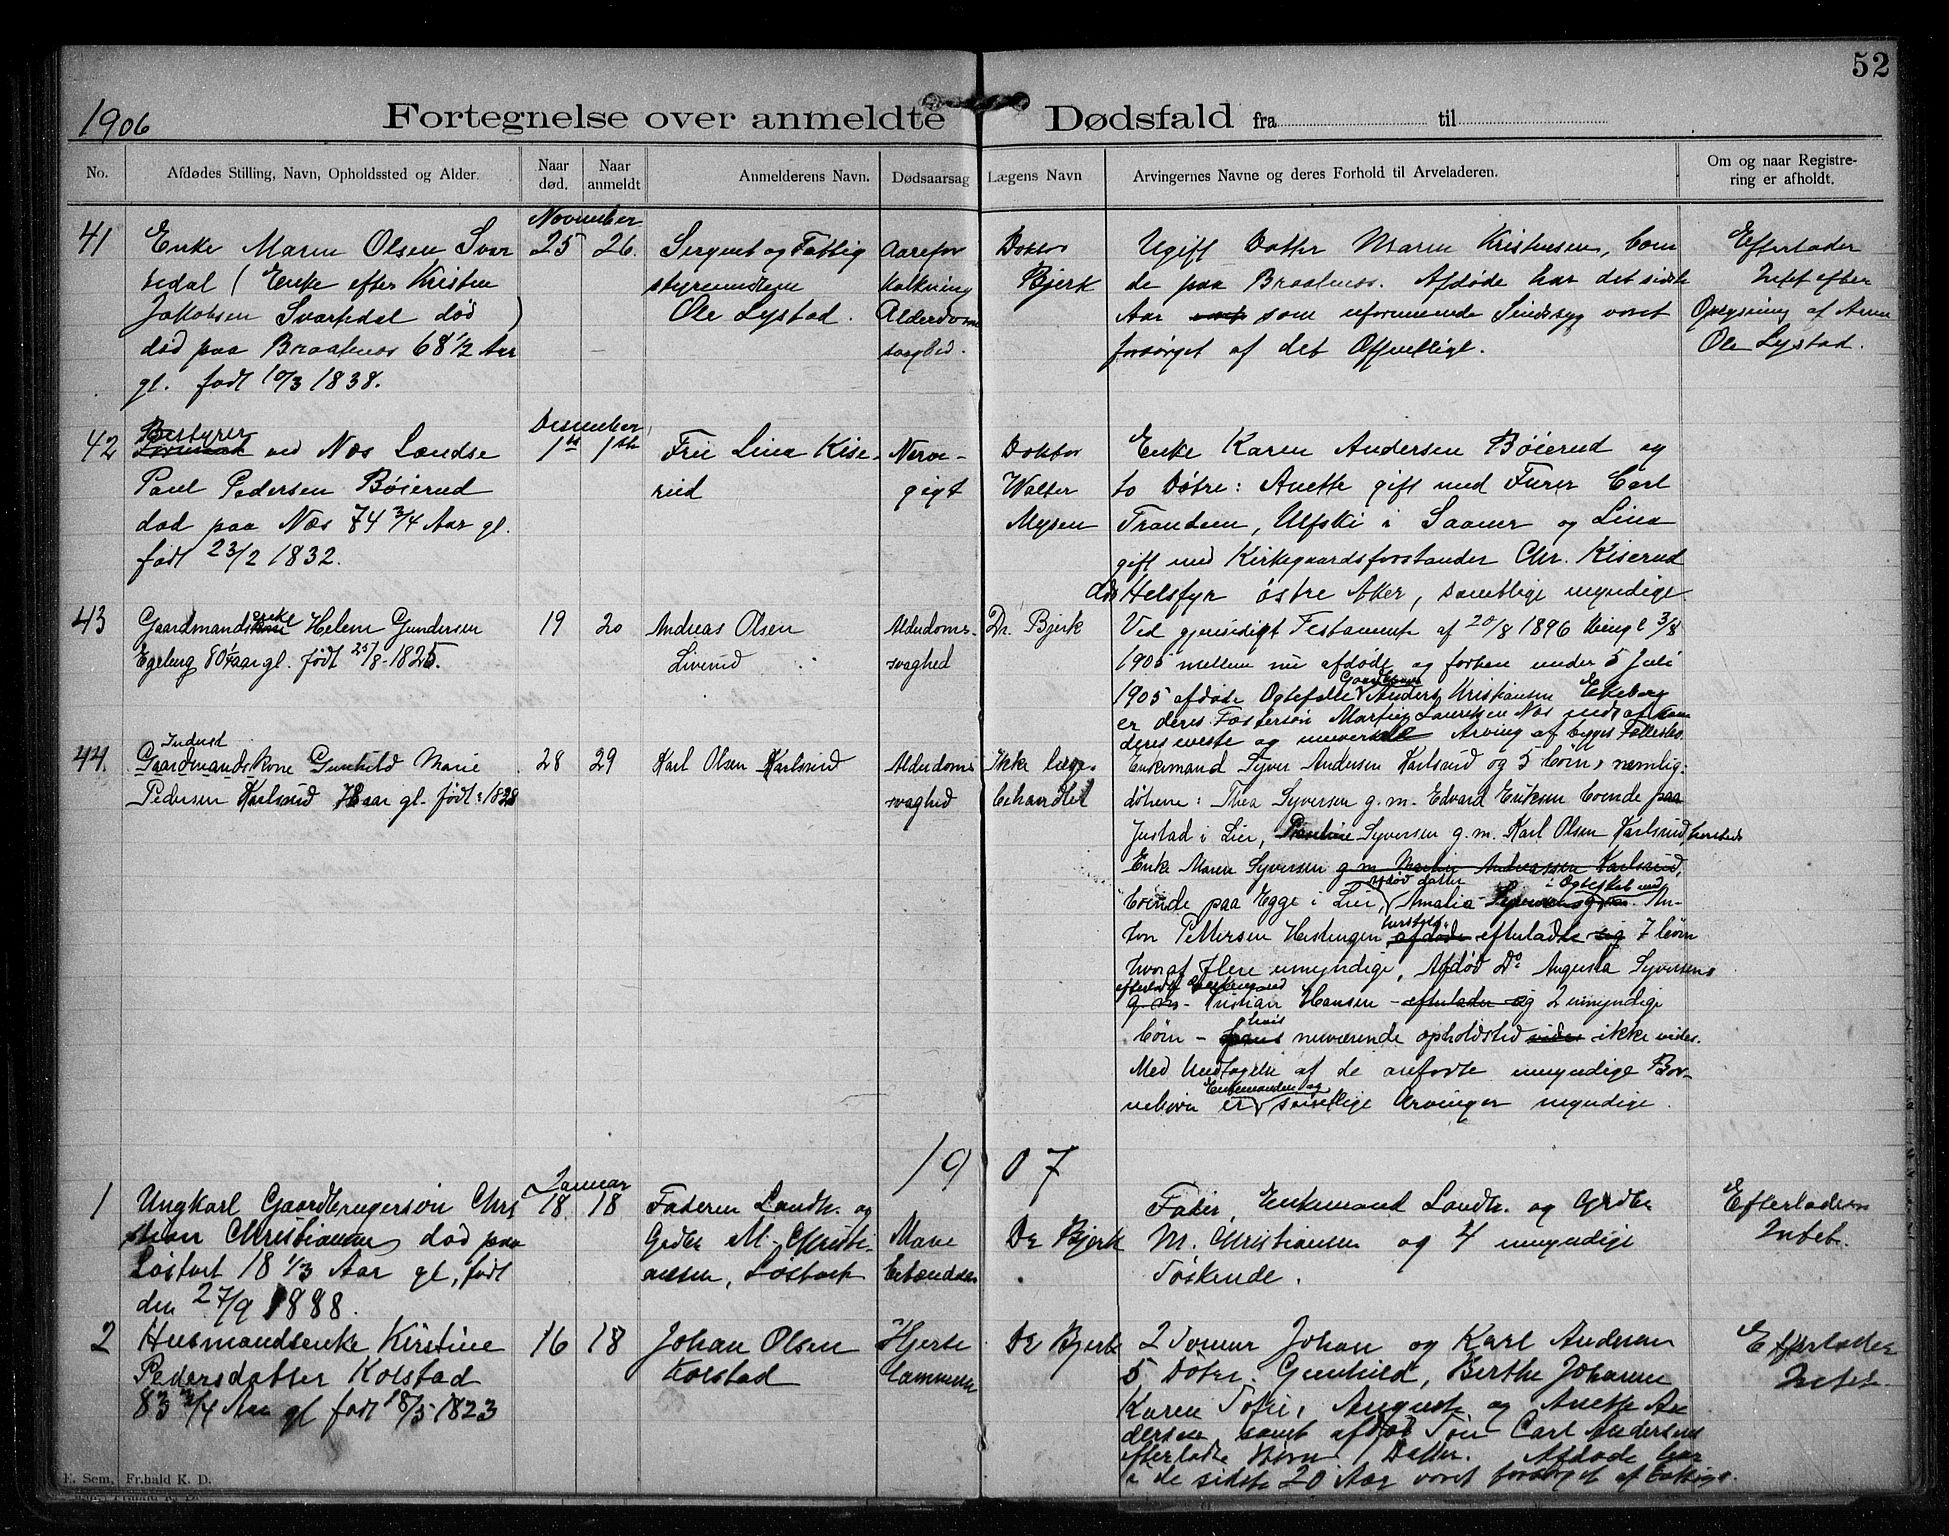 52
1906
Fortegnelse over anmeldte Dødsfald fra til
No. Afdødes Stilling, Navn, Opholdssted og Alder. Naar død. Naar anmeldt Anmelderens Navn. Dødsaarsag Lægens Navn Arvingernes Navne og deres Forhold til Arveladeren. Om og naar Registrering er afholdt.
November
41 Enke Maren Olsen Svar 25 26.
tedal (Enke efter Kristen
Jakobsen Svartedal død)
død paa Braatenos 68 1/2 Aar
gl. født 10/3 1838.
Sergent og Fattig
styremedlem
Ole Lystad.
Aarefor
kalkning
Alderdoms
svaghed.
Doktor
Bjerk
Ugift Datter Maren Kristensen, boen
de paa Braatenos. Afdøde har det sidste
Aar som uformuende Sindssyg voret
forsørget af det Offentlige.
Efterlader
Intet efter
Oplysning af Anm
Ole Lystad.
Desember
42 Bestyrer
ved Næs Landse
Paul Pedersen Bøierud
død paa Næs 74 3/4 Aar gl.
født 23/2 1832.
1ste 1ste
Fru Lina Kise-
rud
Nerve-
gigt
Doktor
Walter
Mysen
Enke Karen Andersen Bøierud og
to Døtre: Anette gift med Furer Carl
Trandem, Ulfski i Saaner og Lina
gift med Kirkegaardsforstander Chr. Kiserud
Helsfyr østre Aker, samtlige myndige.
43 Gaardmandsenke Helene Gundersen
Egeberg 80 aar gl. født 25/8-1825.
19 20
Andreas Olsen
Liverud
Alderdoms-
svaghed
Dr. Bjerk
Ved gjensidigt Testament af 20/8 1896 tingl 3/8
1905 mellem nu afdøde og forhen under 5 Juli
1905 afdøde Ægtefælle Anders Kristiansen Ekeberg
er deres Fostersøn Martin Lauritsen Næs
deres neste og Arving af begges Fællesbo
44. Inderst
Gaardmandskone Gunhild Marie
Pedersen Karlsrud aar gl. født 1828
28 29
Karl Olsen Karlsrud
Alderdoms
svaghed
Ikke læge-
behandlet
Enkemand Syver Andersen Karlsrud og 5 børn, nemlig:
døtrene: Thea Syversen g.m. Edvard Eriksen boende paa
Justad i Lier, Pauline Syversen g.m. Karl Olsen Karlsrud
Enke Maren Syversen g.m. Martin Andreassen Karlsrud,
boende paa Egge i Lier, afdød datter Amalia i Ægteskab med An-
ton Pettersen Hestengen afdøde efterladte sig 7 børn
hvoraf flere umyndige, Afdød Do Augusta Syversens
g.m. Kristian Hansen - efterlader sig 2 umyndige
børn - hvis nuværende opholdsted vides ikke vides.
Med Undtagelse af de anførte umyndige Bør-
nebørn er Enkemanden og samtlige Arvinger myndige.
1907
Januar
1 Ungkarl Gaardbrugersøn Chri
stian Christiansen død paa
Løstvet 18 1/3 Aar gl, født
den 27/9 1888.
18 18
Faderen Landh. og
Grdbr M. Christi-
ansen,
Mave
Dr Bjerk
Fader, Enkemand Landh. og Grdbr
M. Christiansen og 4 umyndige
Søskende.
Efterlader
Intet.
2 Husmandsenke Kirstine
Pedersdatter Kolstad
83 3/4 Aar gl født 18/5 1823
16 18
Johan Olsen
Kolstad
Hjerte
lammelse
Dr Bjerk
2 Sønner Johan og Karl Andersen
5 Døtre: Gunhild, Berthe Johanne
Karen Sofie, Auguste og Anette An
dersen samt afdød Søn Carl Andersens
efterladte Børn 1 Datter. Afdøde har
i de sidste 20 Aar været forsørget af
Efterlader
Intet
F. Sem, Fr.hald K. D.